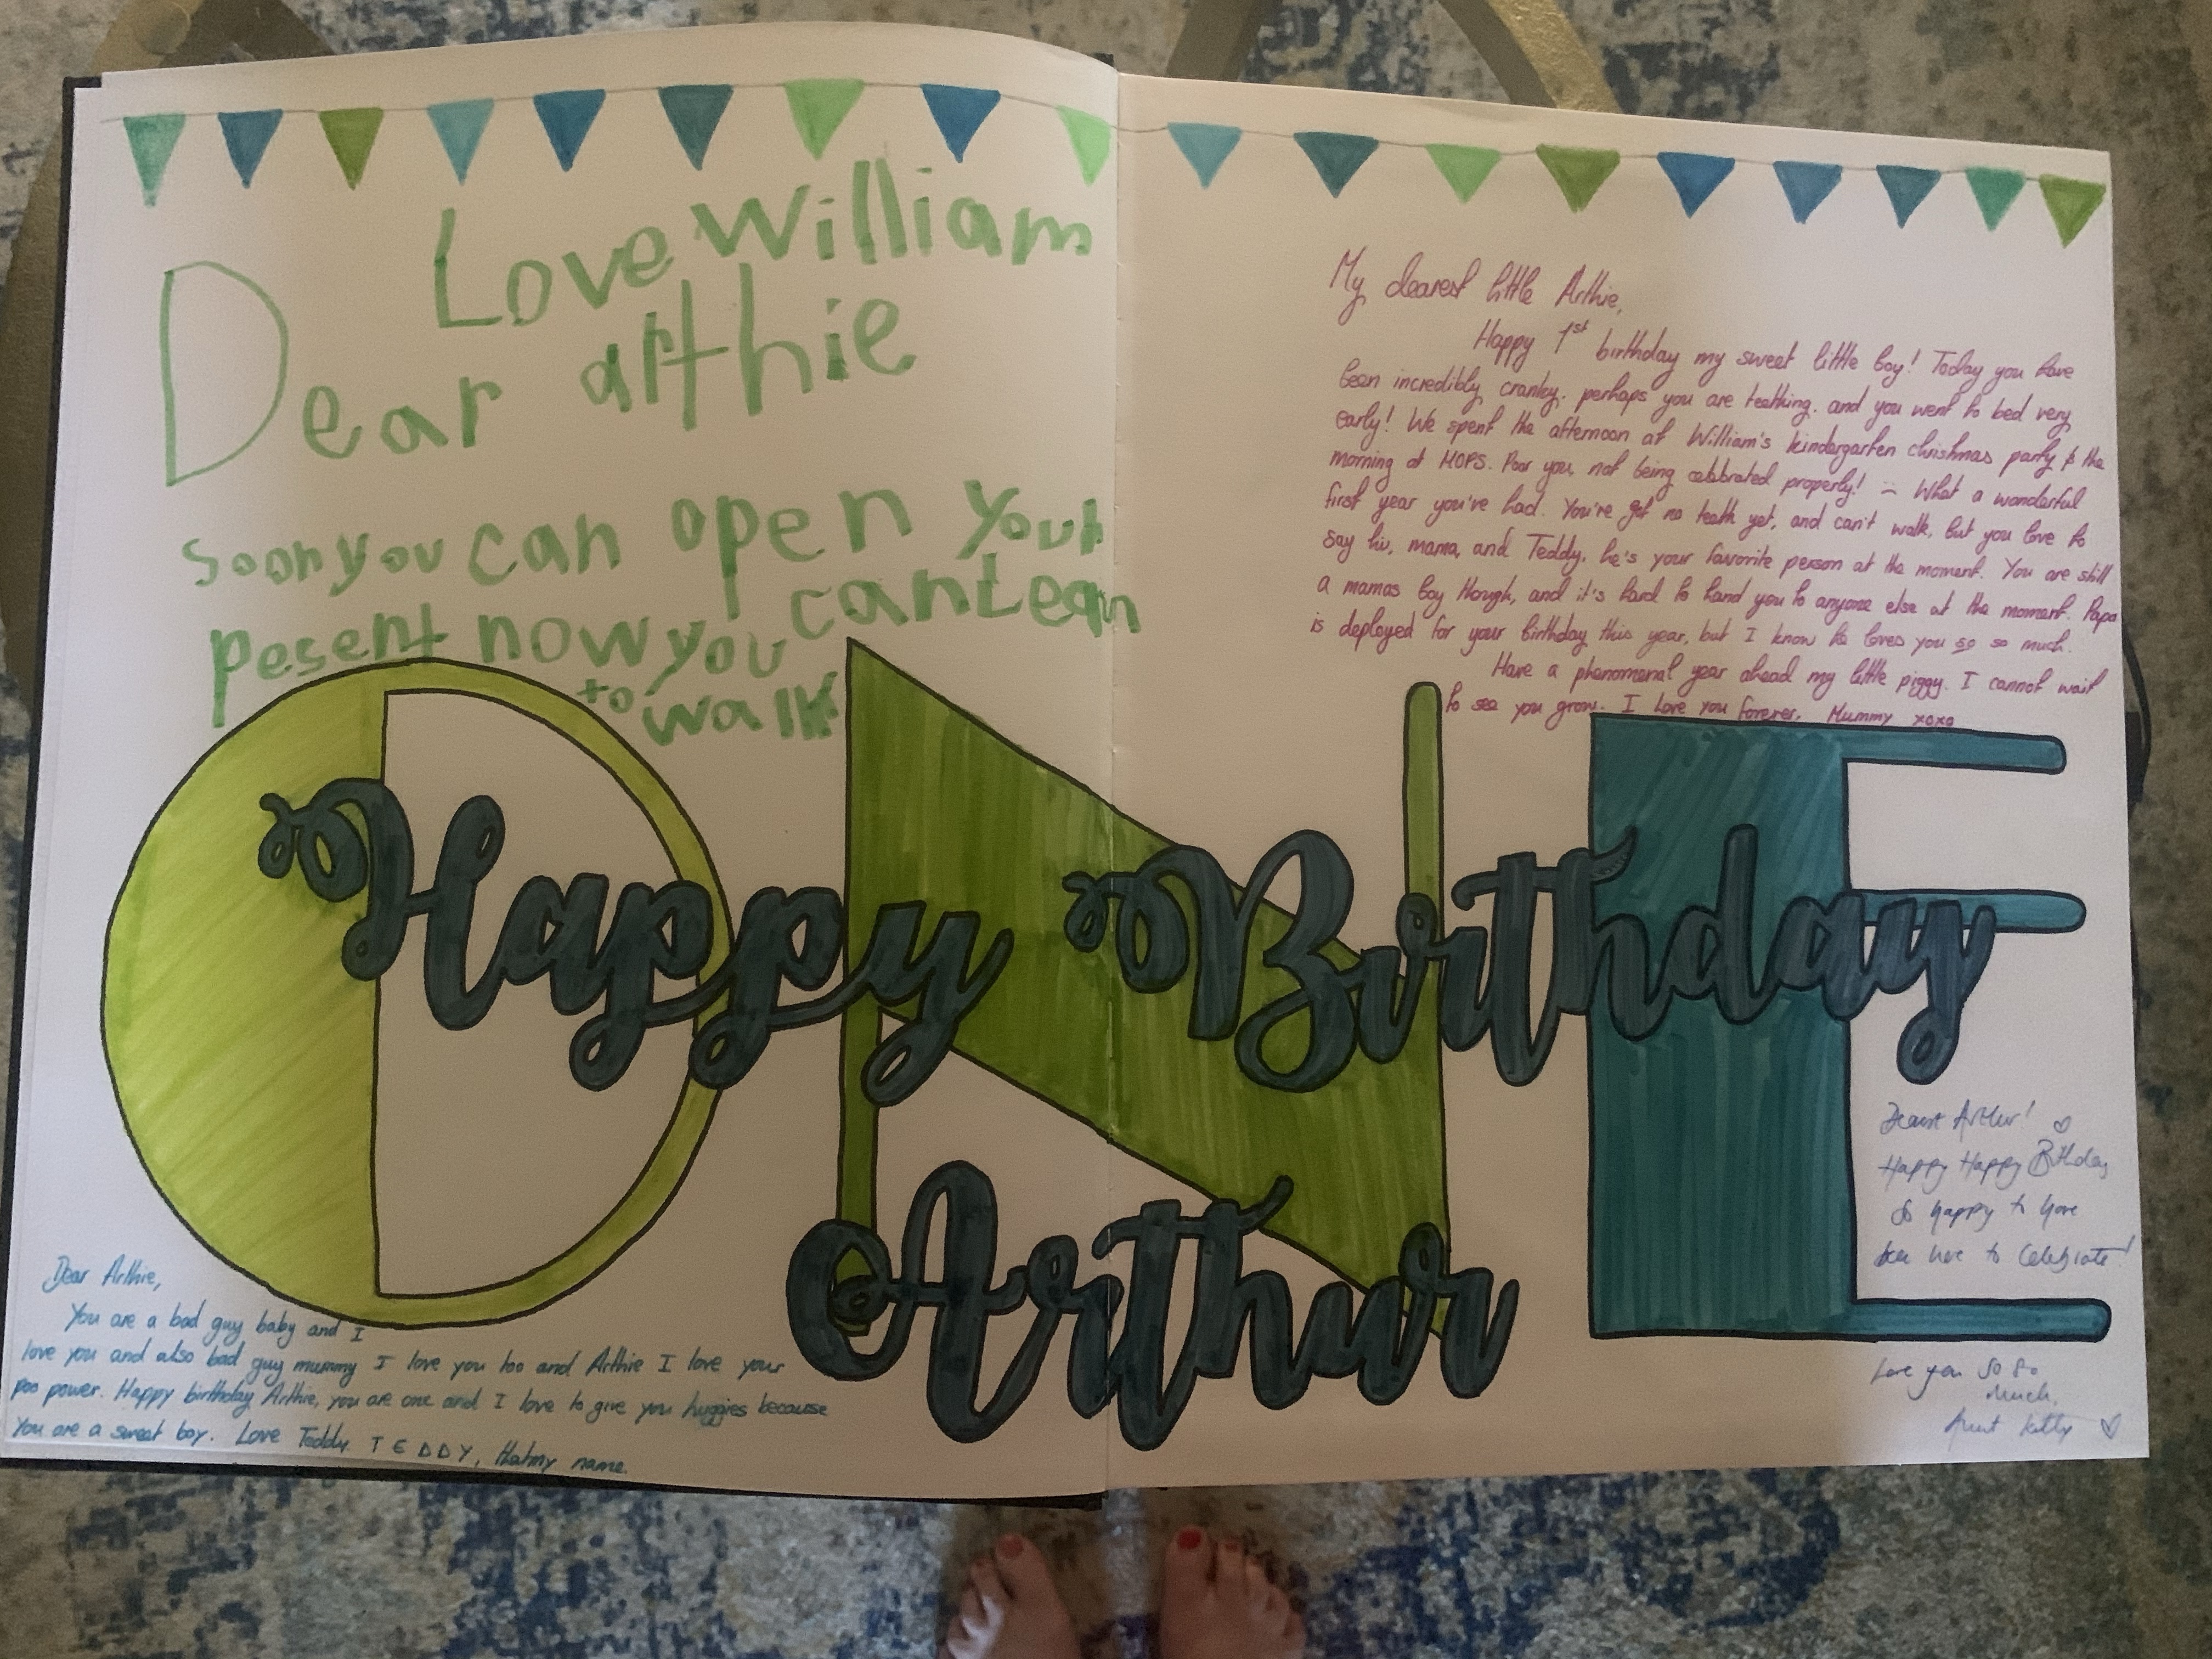 Love William
Dear arthie
soon you can open your
pesent now you can Lean
to walk
My dearest little Arthie,
Happy 1st birthday my sweet little boy! Today you have
been incredibly cranky, perhaps you are teething, and you went to bed very
early! We spent the afternoon at William's kindergarten christmas party & the
morning at MOPS. Poor you, not being celebrated properly! – What a wonderful
first year you've had. You've got no teeth yet, and can't walk, but you love to
say hiv, mama, and Teddy, he's your favorite person at the moment. You are still
a mamas boy though, and it's hard to hand you to anyone else at the moment. Papa
is deployed for your birthday this year, but I know he loves you so so much.
Have a phenomenal year ahead my little piggy. I cannot wait
to see you grow. I love you forever, Mummy xoxo
ONE
Happy Birthday
Arthur
Dear Arthie,
You are a bad guy baby and I
love you and also bad guy mummy I love you too and Arthie I love your
poo power. Happy birthday Arthie, you are one and I love to give you huggies because
you are a sweet boy. Love Teddy. TEDDY, that my name.
Dearest Arthur!
Happy Happy Bithday
So happy to have
been here to celebrate!
Love you so so
much,
Aunt Kitty